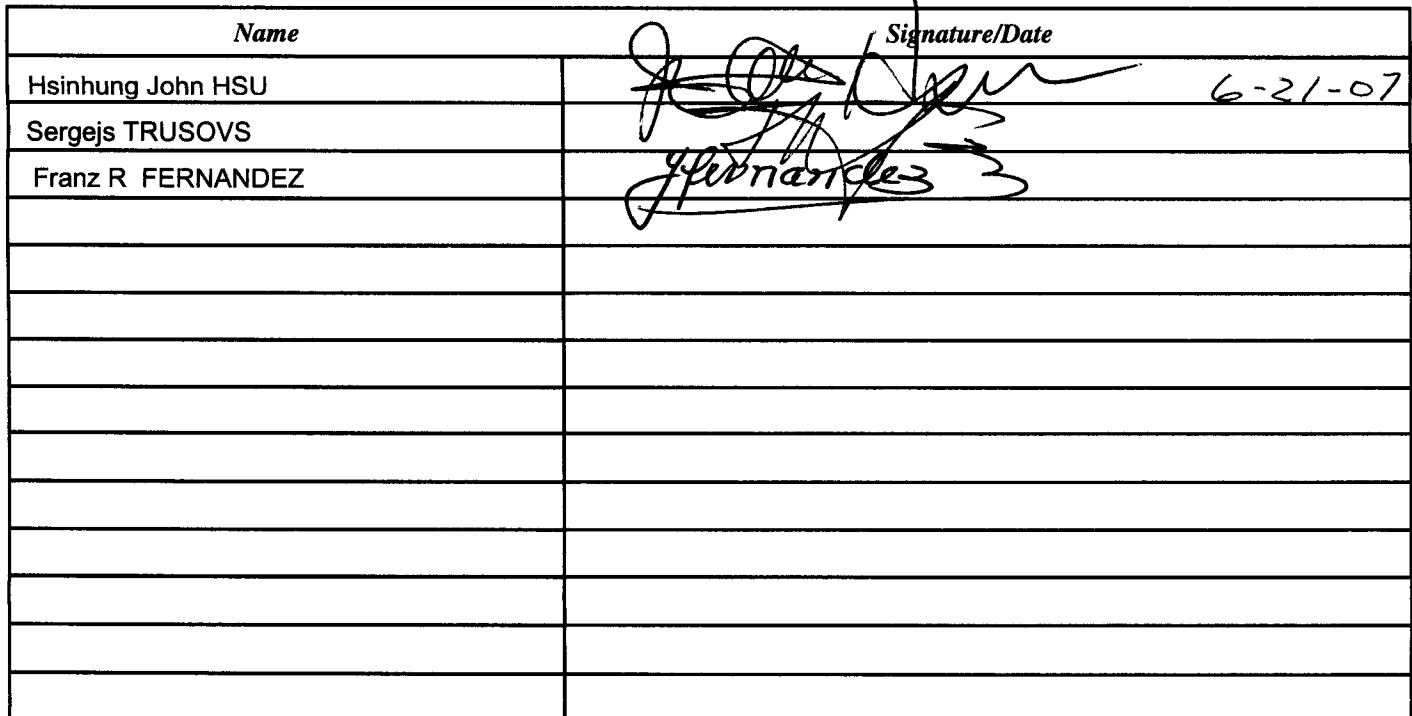 Name Signature/Date
Hsinhung John HSU 6-21-07
Sergejs TRUSOVS
Franz R FERNANDEZ ffernandez